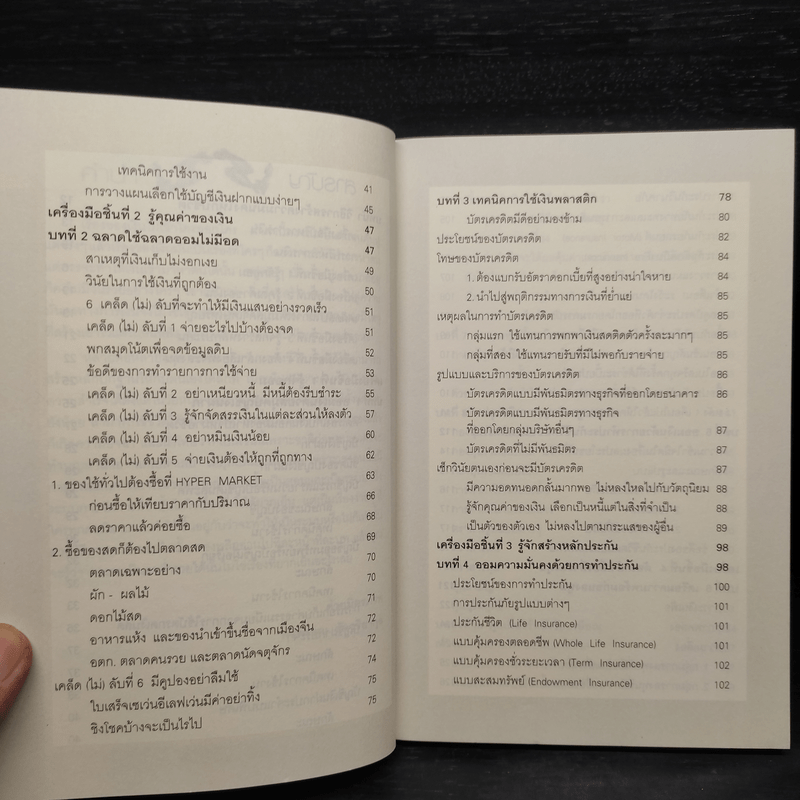 เทคนิคการใช้งาน 41
การวางแผนเลือกใช้บัญชีเงินฝากแบบง่ายๆ 45
เครื่องมือชิ้นที่ 2 รู้คุณค่าของเงิน 47
บทที่ 2 ฉลาดใช้ฉลาดออมไม่มีอด 47
สาเหตุที่เงินเก็บไม่งอกเงย 49
วินัยในการใช้เงินที่ถูกต้อง 50
6 เคล็ด (ไม่) ลับที่จะทำให้มีเงินแสนอย่างรวดเร็ว 51
เคล็ด (ไม่) ลับที่ 1 จ่ายอะไรไปบ้างต้องจด 51
พกสมุดโน้ตเพื่อจดข้อมูลดิบ 52
ข้อดีของการทำรายการการใช้จ่าย 53
เคล็ด (ไม่) ลับที่ 2 อย่าเหนียวหนี้ มีหนี้ต้องรีบชำระ 55
เคล็ด (ไม่) ลับที่ 3 รู้จักจัดสรรเงินในแต่ละส่วนให้ลงตัว 57
เคล็ด (ไม่) ลับที่ 4 อย่าหมิ่นเงินน้อย 60
เคล็ด (ไม่) ลับที่ 5 จ่ายเงินต้องให้ถูกที่ถูกทาง 62
1. ของใช้ทั่วไปต้องซื้อที่ HYPER MARKET 63
ก่อนซื้อให้เทียบราคากับปริมาณ 66
ลดราคาแล้วค่อยซื้อ 68
2. ซื้อของสดก็ต้องไปตลาดสด 69
ตลาดเฉพาะอย่าง 70
ผัก - ผลไม้ 70
ดอกไม้สด 71
อาหารแห้ง และของนำเข้าขึ้นชื่อจากเมืองจีน 72
อตก. ตลาดคนรวย และตลาดนัดจตุจักร 72
เคล็ด (ไม่) ลับที่ 6 มีคูปองอย่าลืมใช้ 74
ใบเสร็จเซเว่นอีเลฟเว่นมีค่าอย่าทิ้ง 75
ชิงโชคบ้างจะเป็นไรไป 75
บทที่ 3 เทคนิคการใช้เงินพลาสติก 78
บัตรเครดิตมีดีอย่ามองข้าม 80
ประโยชน์ของบัตรเครดิต 82
โทษของบัตรเครดิต 84
1. ต้องแบกรับอัตราดอกเบี้ยที่สูงอย่างน่าใจหาย 84
2. นำไปสู่พฤติกรรมทางการเงินที่ย่ำแย่ 85
เหตุผลในการทำบัตรเครดิต 85
กลุ่มแรก ใช้แทนการพกพาเงินสดติดตัวครั้งละมากๆ 85
กลุ่มที่สอง ใช้แทนรายรับที่มีไม่พอกับรายจ่าย 85
รูปแบบและบริการของบัตรเครดิต 86
บัตรเครดิตแบบมีพันธมิตรทางธุรกิจที่ออกโดยธนาคาร 86
บัตรเครดิตแบบมีพันธมิตรทางธุรกิจ
ที่ออกโดยกลุ่มบริษัทอื่นๆ 87
บัตรเครดิตที่ไม่มีพันธมิตร 87
เช็กวินัยตนเองก่อนจะมีบัตรเครดิต 87
มีความอดทนอดกลั้นมากพอ ไม่หลงใหลไปกับวัตถุนิยม 88
รู้จักคุณค่าของเงิน เลือกเป็นหนี้แต่ในสิ่งที่จำเป็น 88
เป็นตัวของตัวเอง ไม่หลงไปตามกระแสของผู้อื่น 89
เครื่องมือชิ้นที่ 3 รู้จักสร้างหลักประกัน 98
บทที่ 4 ออมความมั่นคงด้วยการทำประกัน 98
ประโยชน์ของการทำประกัน 100
การประกันภัยรูปแบบต่างๆ 101
ประกันชีวิต (Life Insurance) 101
แบบคุ้มครองตลอดชีพ (Whole Life Insurance) 101
แบบคุ้มครองชั่วระยะเวลา (Term Insurance) 102
แบบสะสมทรัพย์ (Endowment Insurance) 102